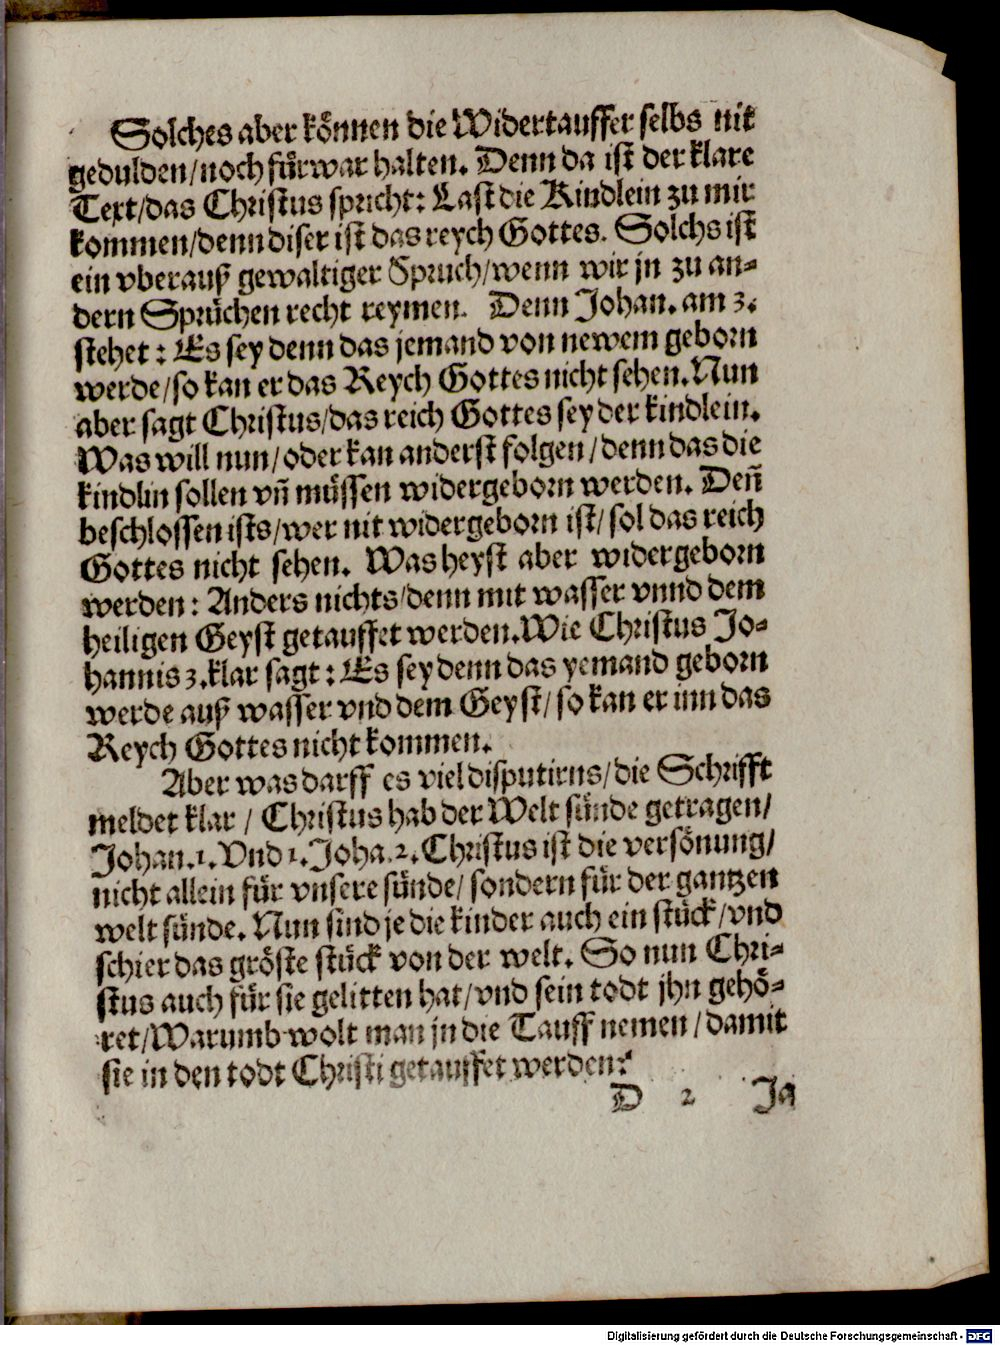 Solches aber können die Widertauffer selbs nit
gedulden/noch für war halten. Denn da ist der klare
Text/das Christus spricht: Last die Kindlein zu mir
kommen/denn diser ist das reych Gottes. Solchs ist
ein vberauß gewaltiger Spruch/wenn wir jn zu an-
dern Sprüchen recht reymen. Denn Johan. am 3.
stehet: Es sey denn das jemand von newem geborn
werde/so kan er das Reych Gottes nicht sehen. Nun
aber sagt Christus/das reich Gottes sey der kindlein.
Was will nun/oder kan anderst folgen/denn das die
kindlin sollen vñ müssen widergeborn werden. Deñ
beschlossen ists/wer nit widergeborn ist/sol das reich
Gottes nicht sehen. Was heyst aber widergeborn
werden: Anders nichts/denn mit wasser vnnd dem
heiligen Geyst getauffet werden. Wie Christus Jo-
hannis 3. klar sagt: Es sey denn das yemand geborn
werde auß wasser vnd dem Geyst/so kan er inn das
Reych Gottes nicht kommen.
Aber was darff es viel disputirns/die Schrifft
meldet klar/Christus hab der Welt sünde getragen/
Johan. 1. Vnd 1. Joha. 2. Christus ist die versönung/
nicht allein für vnsere sünde/sondern für der gantzen
welt sünde. Nun sind je die kinder auch ein stück/vnd
schier das gröste stück von der welt. So nun Chri-
stus auch für sie gelitten hat/vnd sein todt jhn gehö-
ret/Warumb wolt man jn die Tauff nemen/damit
sie in den todt Christi getauffet werden?
D 2 Ja
Digitalisierung gefördert durch die Deutsche Forschungsgemeinschaft - DFG